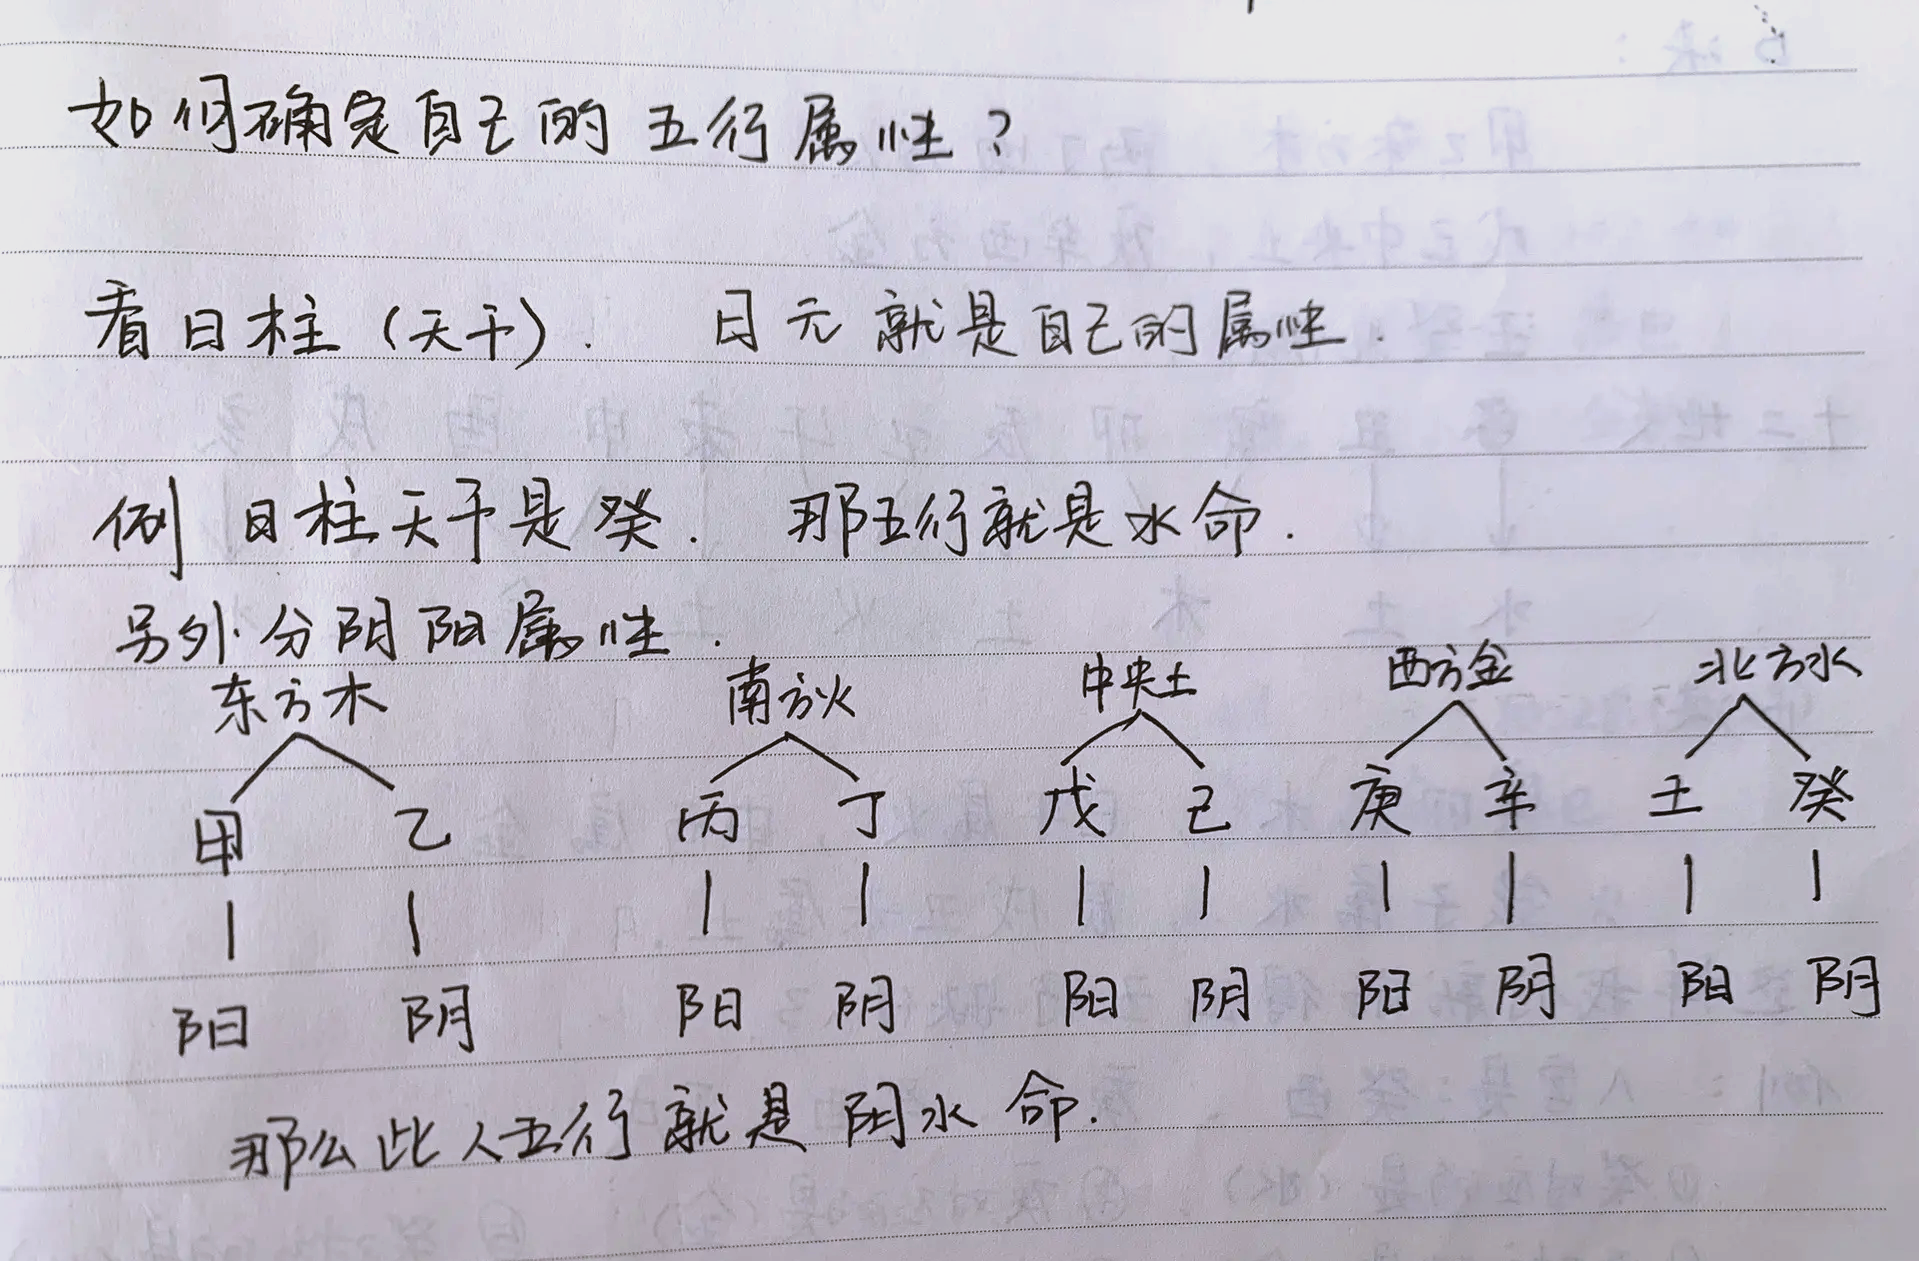 如何确定自己的五行属性？
看日柱（天干）. 日元就是自己的属性.
例 日柱天干是癸. 那五行就是水命.
另外分阴阳属性.
东方木 南方火 中央土 西方金 北方水
甲 乙 丙 丁 戊 己 庚 辛 士 癸
阳 阴 阳 阴 阳 阴 阳 阴 阳 阴
那么此人五行就是阴水命.